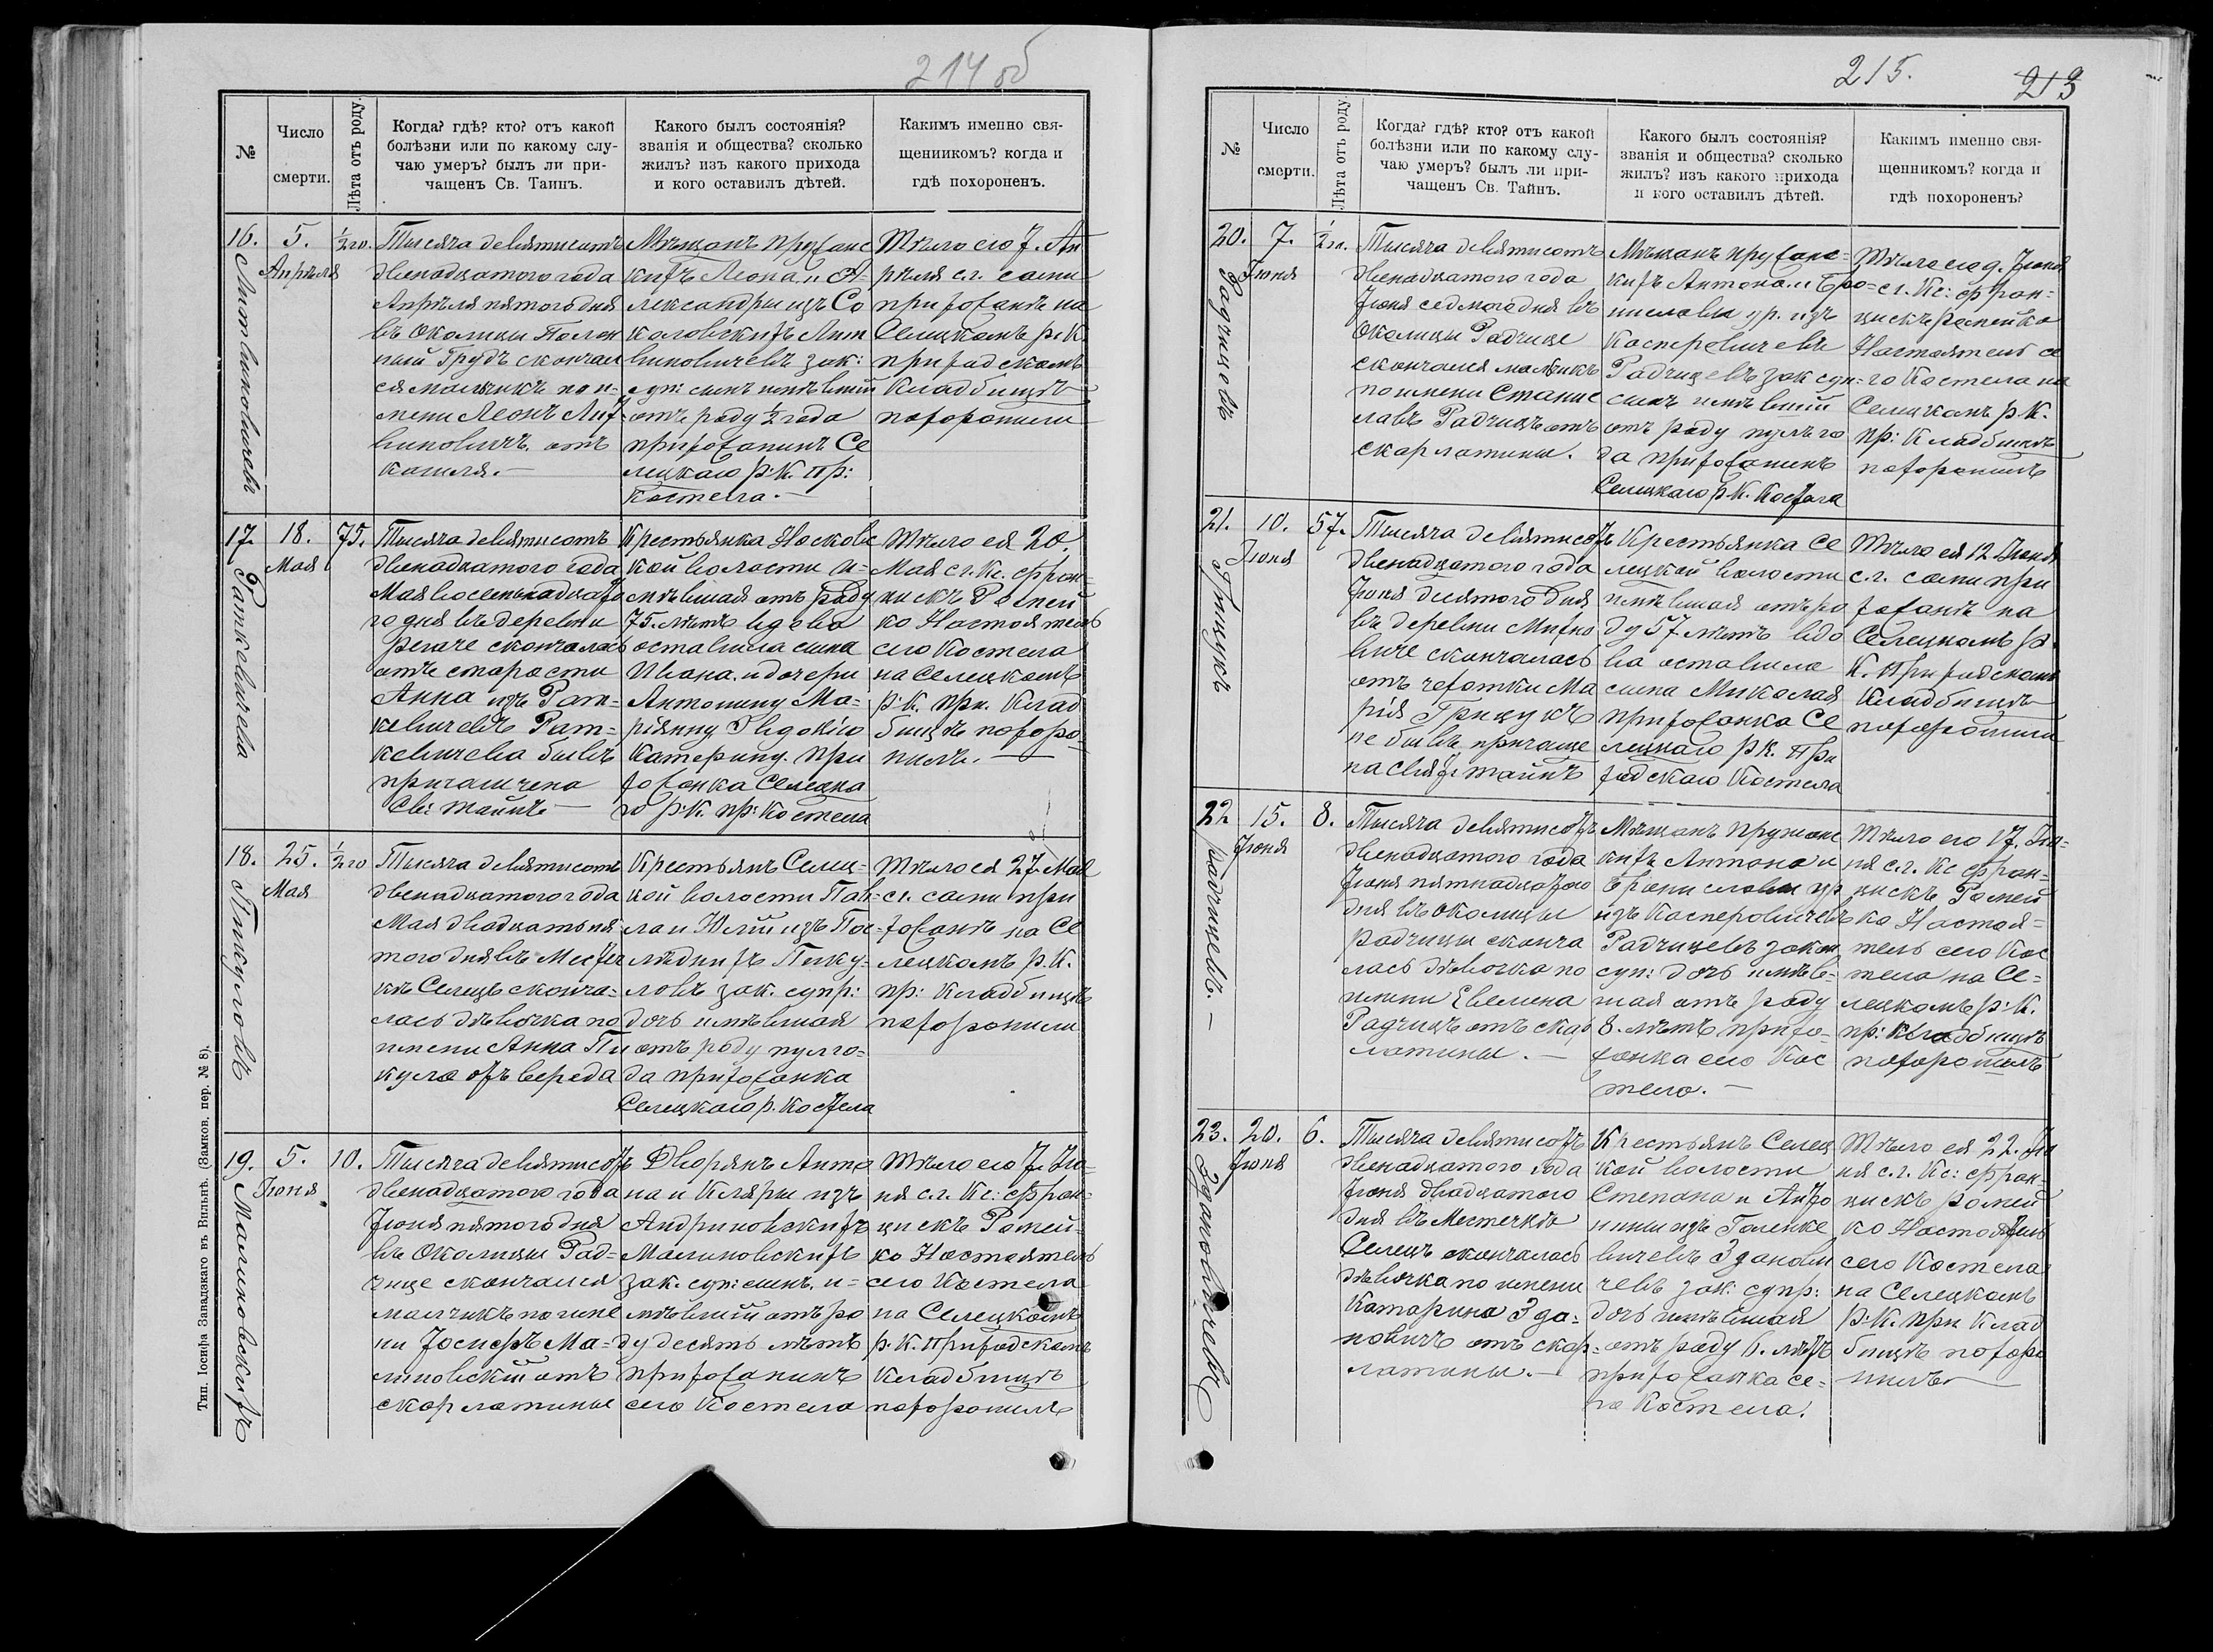 214 об
№
Число
смерти.
Лѣта отъ роду.
Когда? гдѣ? кто? отъ какой
болѣзни или по какому слу-
чаю умеръ? былъ ли при-
чащенъ Св. Таинъ.
Какого былъ состоянія?
званія и общества? сколько
жилъ? изъ какого прихода
и кого оставилъ дѣтей.
Какимъ именно свя-
щенникомъ? когда и
гдѣ похороненъ.
16.
Литвиновичевъ
5.
Апрѣля
½ го.
Тысяча девятисотъ
двенадцатого года
Апрѣля пятого дня
въ Околицы
Грудъ скончал
ся мальчикъ по и-
мени Леонъ Лит
виновичъ, отъ
кашля.—
Мѣщанъ пружанс
кихъ Леона и А-
лександры изъ Со
коловскихъ Лит
виновичевъ зак:
суп: сынъ имѣвшій
отъ роду ½ года
прихожанинъ Се
лецкаго р: К. пр:
Костела.—
Тѣло его 7. Ап
рѣля с.г. сами
прихожанѣ на
Селецкомъ р. К.
приходскомъ
Кладбищѣ
похоронили
17.
Раткевичева
18.
Мая
75.
Тысяча девятисотъ
двенадцатого года
Мая восемьнадцато
го дня въ деревни
скончалась
отъ старости
Анна изъ Рат-
кевичевъ Рат=
кевичева бывъ
причащена
Св: тайнъ—
Крестьянка
кой волости и-
мѣвшая отъ роду
75. лѣтъ вдова
оставила сына
Ивана. и дочери
Антонину Ма=
ріянну Эвдокію
Катерину. При
хожанка Селецка
го р: К. пр: Костела
Тѣло ея 20.
Мая с.г. Кс. Фран-
цискъ Ромей
ко Настоятель
сего Костела
на Селецкомъ
р: К. при. Клад
бищѣ похоро-
нилъ.—
18.
Пикуловъ
25.
Мая
½ го
Тысяча девятисотъ
двенадцатого года
Мая двадцать пя
того дня въ Местеч
кѣ Селецъ сконча=
лась дѣвочка по
имени Анна Пи
кула отъ вереда
Крестьянъ Селец-
кой волости Пав-
ла и Юліи изъ
Пику-
ловъ зак. супр:
дочь имѣвшая
отъ роду пулго-
да прихожанка
Селецкаго р. Костела
Тѣло ея 27. Мая
с.г. сами при
хожанѣ на Се
лецкомъ р. К.
пр: Кладбищѣ
похоронили
19.
Малиновскихъ
5.
Іюня
10.
Тысяча девятисотъ
двенадцатого года
Іюня пятого дня
въ Околицы Рад=
чице скончался
мальчикъ по име
ни Іосифъ Ма-
линовскій отъ
скарлатины
Дворянъ Анто
на и Кляры изъ
Андриковскихъ
Малиновскихъ
зак. суп: сынъ. и=
мѣвшій отъ ро
ду десять лѣтъ
прихожанинъ
сего Костела
Тѣло его 7. Ію-
ня с.г. Кс: Фран-
цискъ Ромей-
ко Настоятель
сего Костела
на Селецкомъ
р. К. Приходскомъ
Кладбищѣ
похоронилъ
Тип. Іосифа Завадзкаго въ Вильнѣ. (Замков. пер. № 8).
215.
213
№
Число
смерти.
Лѣта отъ роду.
Когда? гдѣ? кто? отъ какой
болѣзни или по какому слу-
чаю умеръ? былъ ли при-
чащенъ Св. Тайнъ.
Какого былъ состоянія?
званія и общества? сколько
жилъ? изъ какого прихода
и кого оставилъ дѣтей.
Какимъ именно свя-
щенникомъ? когда и
гдѣ похороненъ?
20.
Радчицевъ
7.
Іюня
½ го.
Тысяча девятисотъ
двенадцатого года
Іюня седмого дня въ
Околицы Радчице
скончался мальчикъ
по имени Станис
лавъ Радчицъ отъ
скарлатины.
Мѣщанъ пружанс-
кихъ Антона и Бро=
ниславы
Касперовичевъ
Радчицевъ зак суп=
сынъ имѣвшій
отъ роду пулъ го
да прихожанинъ
Селецкаго р. К. Костела
Тѣло его 9. Іюня
с.г. Кс: Фран=
цискъ Ромейко
Настоятель се
го Костела на
Селецкомъ р. К.
пр: Кладбищѣ
похоронилъ
21.
Грицукъ
10.
Іюня
57.
Тысяча девятисотъ
двенадцатого года
Іюня десятого дня
въ деревни
скончалась
отъ чехотки Ма
рія Грицукъ
не бывъ причаще
на святъ тайнъ
Крестьянка Се
лецкой волости
имѣвшая отъ ро
ду 57 лѣтъ вдо
ва оставила
сына Миколая
прихожанка Се
лецкаго р. К. При
ходскаго Костела
Тѣло ея 12 Іюня
с.г. сами при
хожанѣ на
Селецкомъ р.
К. Приходскомъ
Кладбищѣ
похоронили
22.
Радчицевъ.—
15.
Іюня
8.
Тысяча девятисотъ
двенадцатого года
Іюня пятнадцатого
дня въ околицы
Радчицы сконча
лась дѣвочка по
имени Евелина
Радчицъ отъ скар
латины.—
Мѣщанъ пружанс
кихъ Антона и
Брониславы
изъ Касперовичевъ
Радчицевъ закон
суп: дочь имѣв-
шая отъ роду
8. лѣтъ прихо-
жанка сего Кос
тела.—
Тѣло его 17. Ію-
ня с.г. Кс Фран-
цискъ Ромей
ко Настоя=
тель сего Кос
тела на Се-
лецкомъ р: К.
пр: Кладбищѣ
похоронилъ
23.
Здановичевъ
20.
Іюня
6.
Тысяча девятисотъ
двенадцатого года
Іюня двадцатого
дня въ Местечкѣ
Селецъ скончалась
дѣвочка по имени
Катарина Зда-
новичъ отъ скар-
латины.—
Крестьянъ Селец
кой волости
Степана и Анто
нины изъ Голенке
вичевъ Зданови
чевъ зак: супр:
дочь имѣвшая
отъ роду 6. лѣтъ
прихожанка се-
го Костела.
Тѣло ея 22. Ію
ня с.г. Кс: Фран-
цискъ Ромей
ко Настоятель
сего Костела
на Селецкомъ
р: К. при Клад
бищѣ похоро
нилъ—